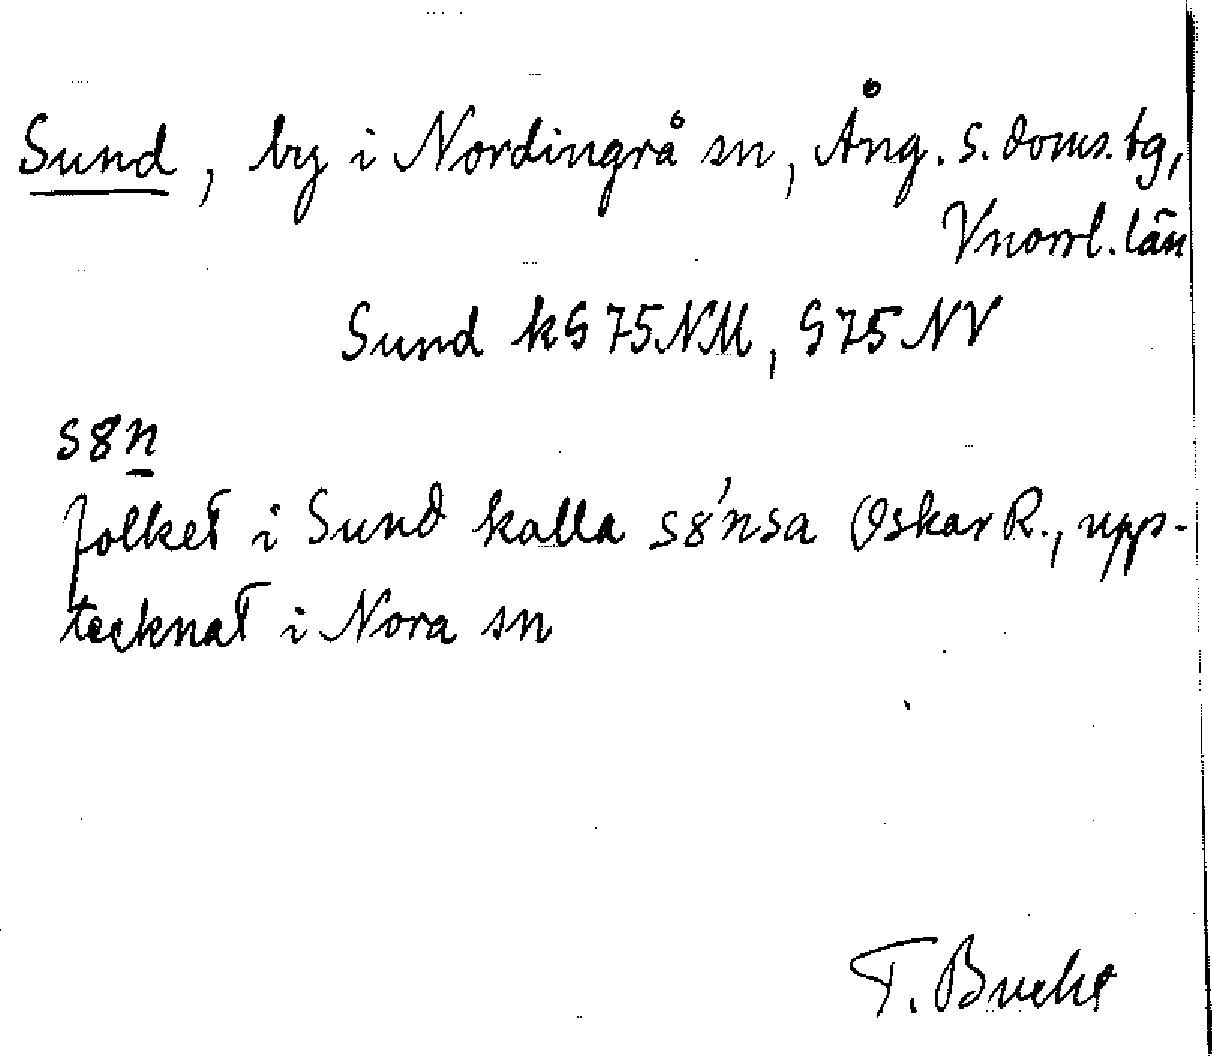 Sund, by i Nordingrå sn, Ång. s. doms. tg,
Vnorrl. län
Sund kS 75 NM, S 75 NV
s8n̲
folket i Sund kalla s8'nsa Oskar R., upp-
tecknat i Nora sn
T. Bucht